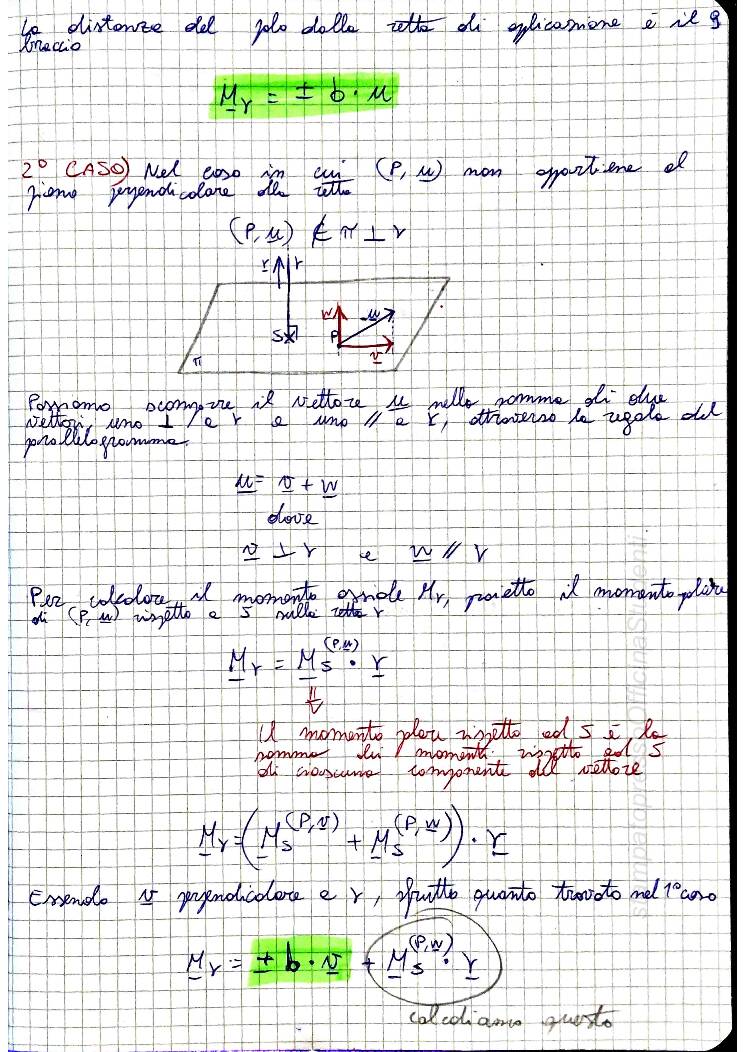 La distanza del polo dalla retta di applicazione è il 9
braccio
M̲r = ± b · u
2° CASO) Nel caso in cui (P, u̲) non appartiene al
piano perpendicolare alla retta
(P, u̲) ∉ π ⊥ r
r̲ r
w̲ u̲
S P
v̲
π
Possiamo scomporre il vettore u̲ nella somma di due
vettori, uno ⊥ a r e uno // a r, attraverso la regola del
parallelogramma.
u̲ = v̲ + w̲
dove
v̲ ⊥ r e w̲ // r
Per calcolare il momento assiale Mr, proietto il momento polare
di (P, u̲) rispetto a S sulla retta r
M̲r = M̲s^(P,u̲) · r̲
⇓
Il momento polare rispetto ad S è la
somma dei momenti rispetto ad S
di ciascuna componente del vettore
M̲r = (M̲s^(P,v̲) + M̲s^(P,w̲)) · r̲
Essendo v̲ perpendicolare a r, sfrutto quanto trovato nel 1° caso
M̲r = ± b · v̲ + M̲s^(P,w̲) · r̲
calcoliamo questo
OfficinaStudenti